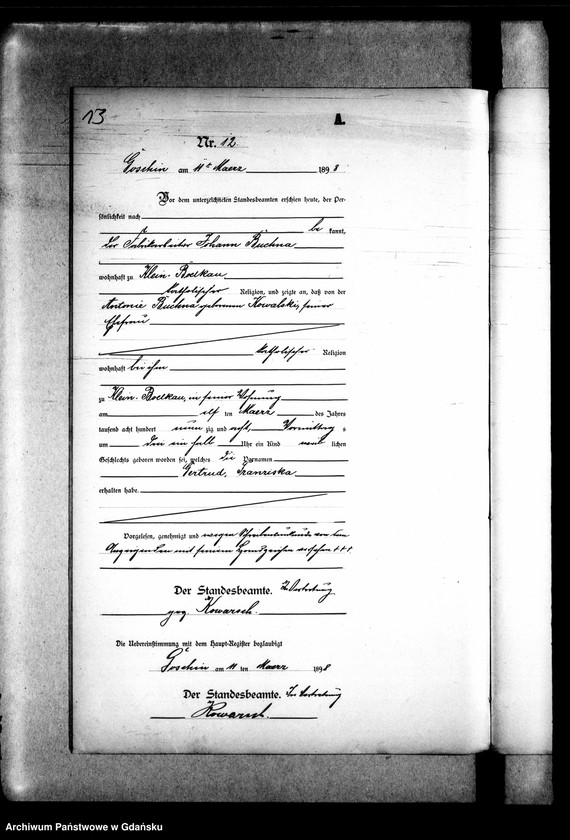 13
A.
Nr. 12
Goschin am 11t Maerz 1898
Vor dem unterzeichneten Standesbeamten erschien heute, der Per-
sönlichkeit nach
be kannt,
der Fabrikarbeiter Johann Buchna
wohnhaft zu Klein-Boelkau
katholischer Religion, und zeigte an, daß von der
Antonie Buchna geborenen Kowalski, seiner
Ehefrau
katholischer Religion
wohnhaft bei ihm
zu Klein-Boelkau, in seiner Wohnung
am elf ten Maerz des Jahres
tausend acht hundert neun zig und acht, Vormittag s
um ein halb Uhr ein Kind weib lichen
Geschlechts geboren worden sei, welches die Vornamen
Gertrud, Franziska
erhalten habe.
Vorgelesen, genehmigt und wegen Schreibensunkunde von dem
Anzeigenden mit seinem Handzeichen versehen +++
Der Standesbeamte. In Vertretung
gez. Kowarsch.
Die Uebereinstimmung mit dem Haupt-Register beglaubigt
Goschin am 11 ten Maerz 1898
Der Standesbeamte. In Vertretung
Kowarsch.
Archiwum Państwowe w Gdańsku